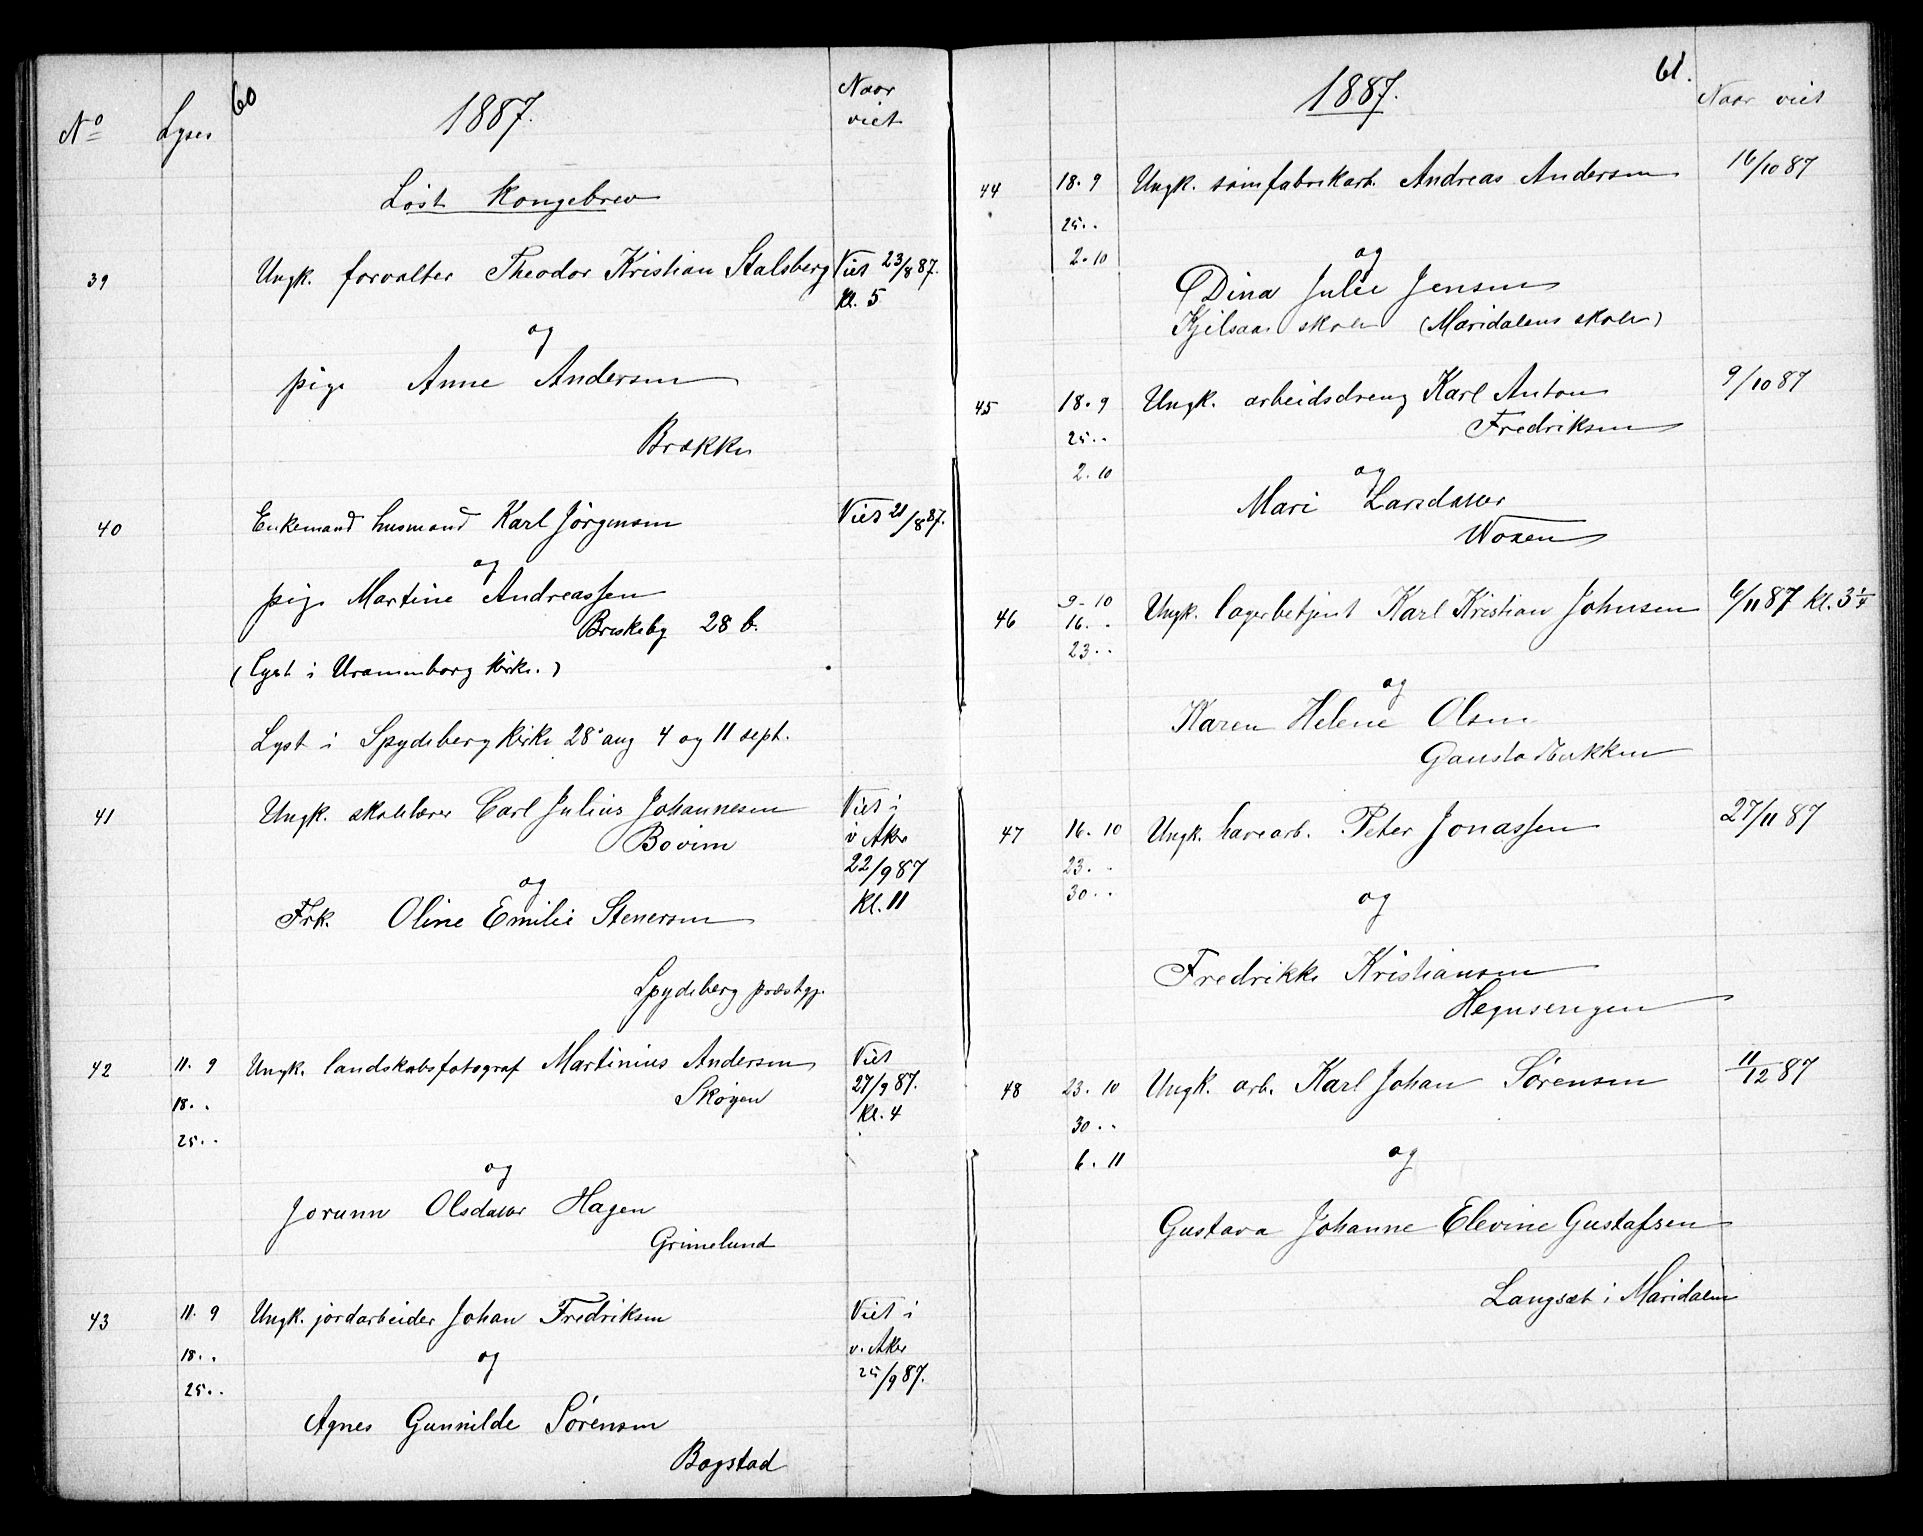 60
1887.
Nº
Lyses
Naar viet
Löst Kongebrev
39
Ungk. forvalter Theodor Kristian Stalsberg
Viet 23/8 87.
kl. 5
og
pige Anne Andersen
Brække
40
Enkemand husmand Karl Jörgensen
Viet 21/8 87.
og
pige Martine Andreassen
Briskeby 28 b.
(Lyst i Uranienborg kirke.)
Lyst i Spydeberg kirke 28 aug 4 og 11 sept.
41
Ungk. skolelærer Carl Julius Johannesen
Bovim
Viet i
v Aker
22/9 87
kl. 11
og
Frk. Oline Emilie Stenersen
Spydeberg præstgj.
42
11. 9
18. .
25. .
Ungk. landskabsfotograf Martinius Andersen
Skóyen
Viet
27/9 87.
kl. 4
og
Jorunn Olsdatter Hagen
Grimelund
43
11. 9
18. .
25. .
Ungk. jordarbeider Johan Fredriksen
Viet i
v. Aker
25/9 87.
og
Agnes Gunnilde Sörensen
Bogstad
61.
1887.
Naar viet
44
18. 9
25. .
2. 10
Ungk. sömfabrikarb. Andreas Andersen
16/10 87
og
Dina Julie Jensen
Kjelsaas skole (Maridalens skole)
45
18. 9
25. .
2. 10
Ungk. arbeidsdreng Karl Anton
Fredriksen
9/10 87
og
Mari Larsdatter
Voxen
46
9. 10
16. .
23. .
Ungk. lagerbetjent Karl Kristian Johnsen
6/11 87 kl. 3 1/4
og
Karen Helene Olsen
Gaustadbakken
47
16. 10
23. .
30. .
Ungk. havearb. Peter Jonassen
27/11 87
og
Fredrikke Kristiansen
Hegnsengen
48
23. 10
30. .
6. 11
Ungk. arb. Karl Johan Sörensen
11/12 87
og
Gustava Johanne Elevine Gustafsen
Langsæt i Maridalen